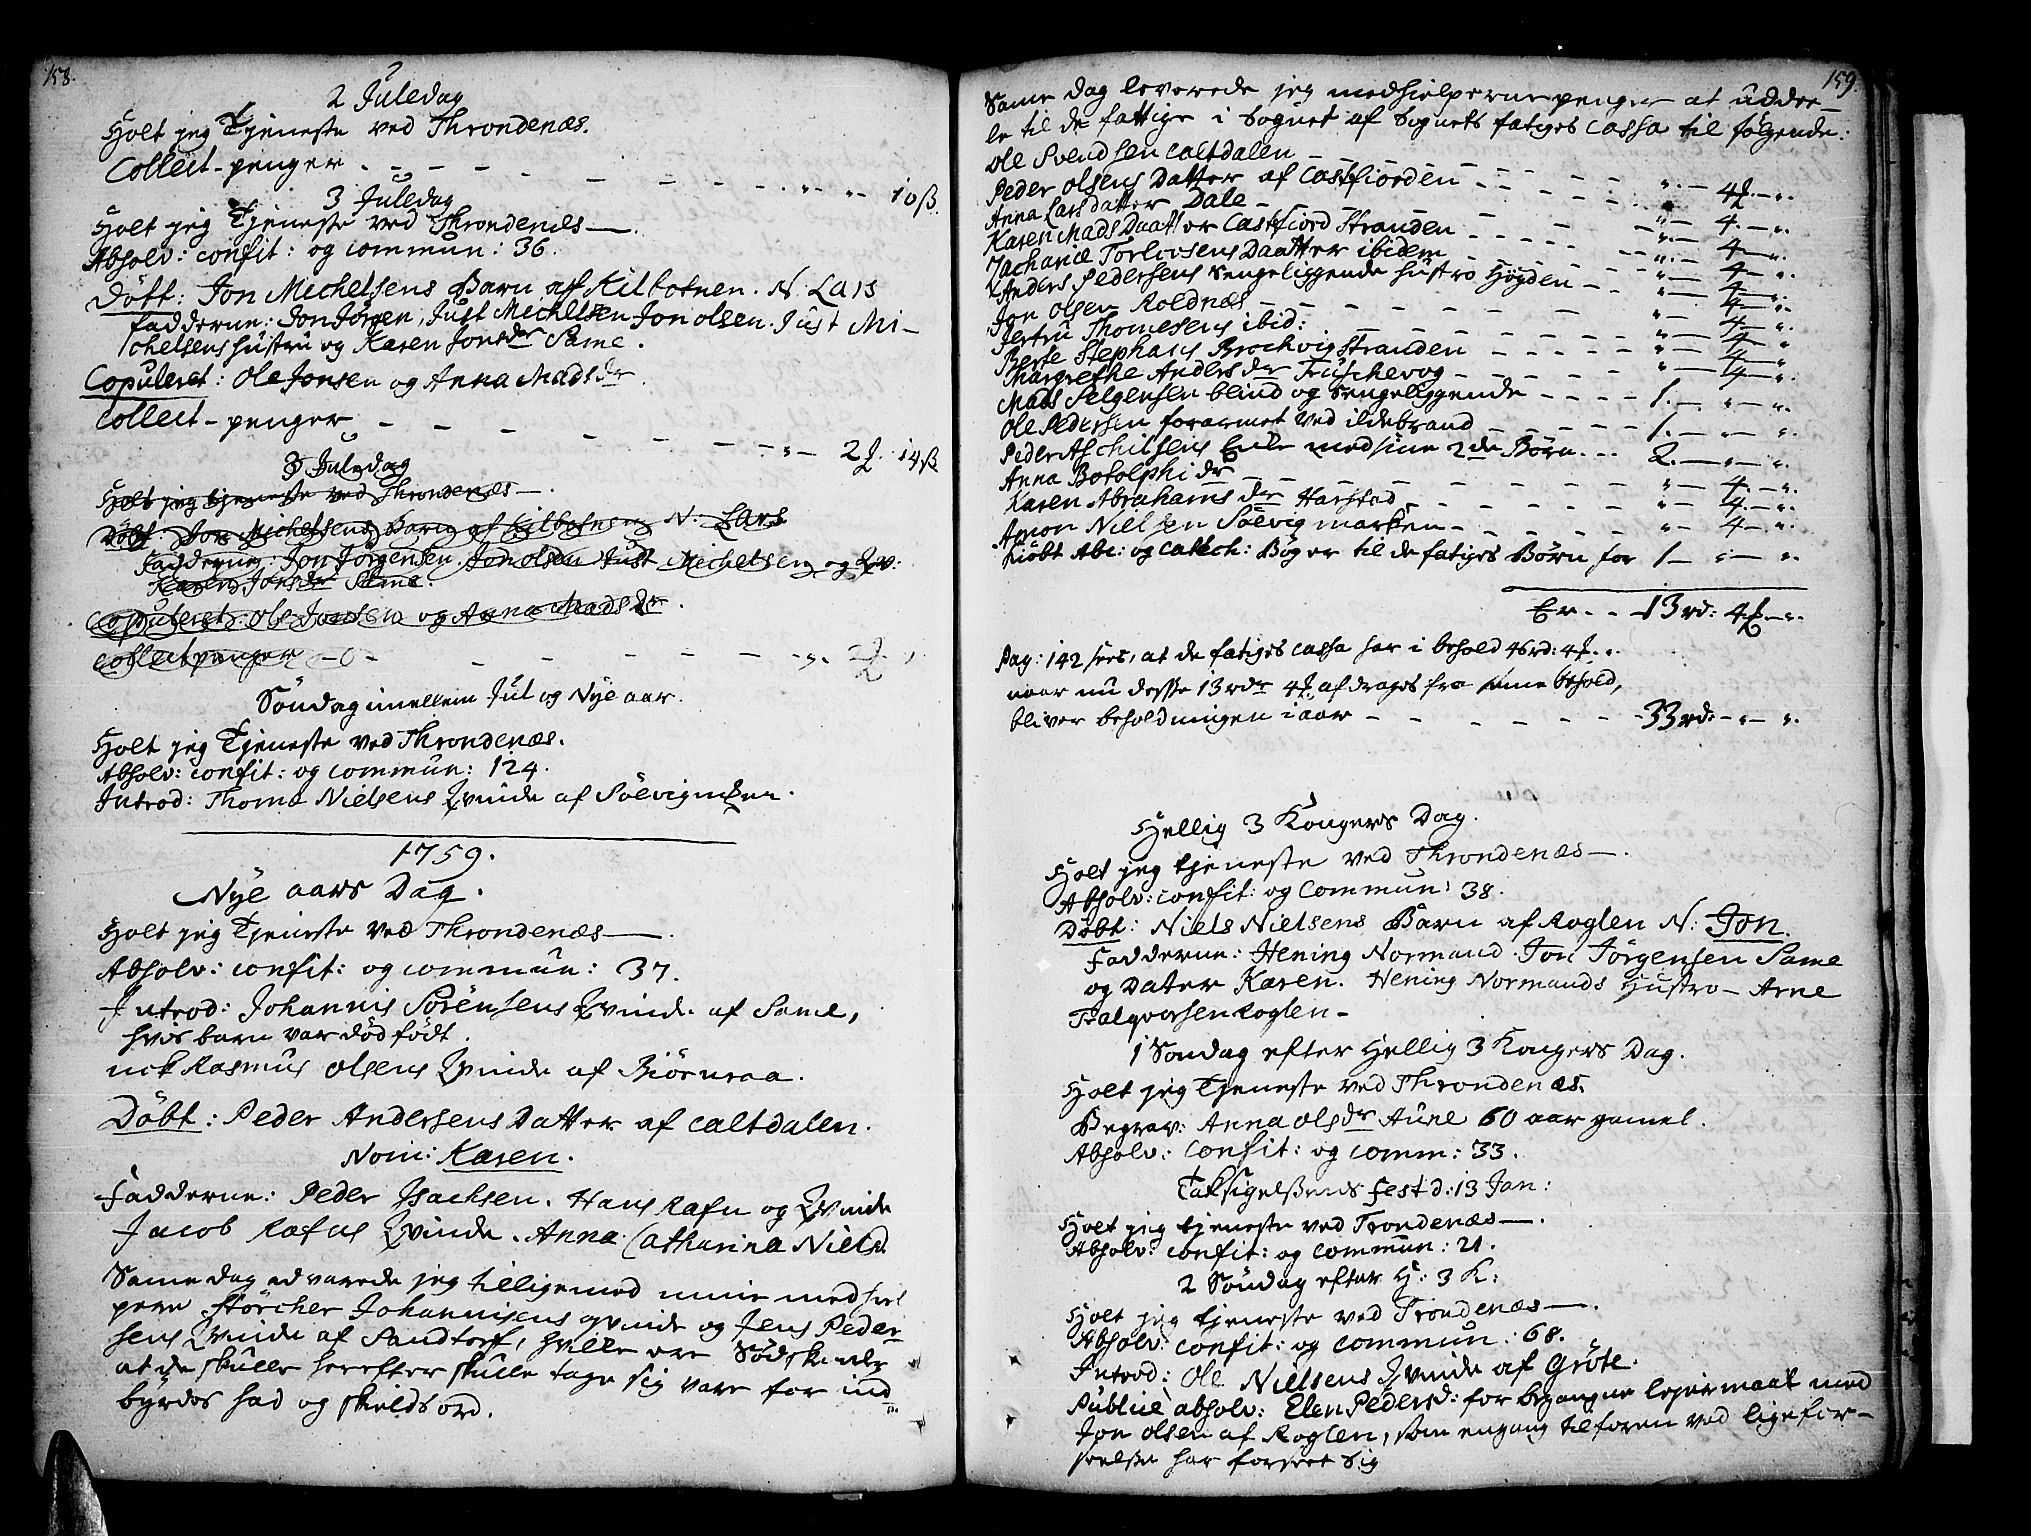 158.
2 Juledag
Holt jeg Tjeneste ved Throndenæs.
Collect-penger - - - - - - - - " - 10 ß.
3 Juledag
Holt jeg Tjeneste ved Throndenæs —.
Absolv: confit: og commun: 36.
Döbt: Jon Michelsens Barn af Kilbotnen. N: Lars
fadderne: Jon Jörgen, Just Michelsen Jon olsen. Just Mi-
chelsens hustru og Karen Jonsdr Same.
Copuleret: Ole Jonsen og Anna Madsdr
Collect-penger - - - - - - - " - 2 14 ß
3 Juledag
Holt jeg tjeneste ved Throndenæs —.
Döbt: Jon Michelsens Barn af Kilbotnen N: Lars
Fadderne: Jon Jörgensen. Jon olsen Just Michelsen og Qv:
Karen Jonsdr Same.
Copuleret: Ole Jonsen og Anna Madsdr.
Collectpenger - - - - - - - " - 2
Söndag imellem Jul og Nye aar.
Holt jeg Tjeneste ved Throndenæs.
Absolv: confit: og commun: 124.
Introd: Thoma Nielsens Qvinde af Sölvigmken.
1759.
Nye aars Dag.
Holt jeg Tjeneste ved Throndenæs —.
Absolv: confit: og commun: 37.
Introd: Johannis Sörensens Qvinde af Same,
hvis barn var död födt.
nok Rasmus Olsens Qvinde af Biörnraa.
Döbt: Peder Andersens Datter af Caltdalen.
Nom: Karen.
Fadderne: Peder Jsachsen. Hans Rafn og Qvinde
Jacob Rafns Qvinde. Anna Catharina Nielsd.
Same dag advarede jeg tilligemed mine medhiel
pere Störcher Johannisens qvinde og Jens Peder
sens Qvinde af Sandtorff, hville ere Södskende
at de skulle herefter skulle tage sig vare for ind
byrdes had og skieldsord.
159.
Same dag leverede jeg medhielperne penger at uddee-
le til de fattige i Sognet af Sognets fatiges Cassa til fölgende:
Ole Svendsen Caltdalen - - - - - " - 4 - "
Peder Olsens Datter af Castfiorden - - - - " - 4 - "
Anna Larsdatter Dale - - - - " - 4 - "
Karen Mads Daatter Castfiord Stranden - - - " - 4 - "
Zachariæ Torlevsens Daatter ibidem - - - " - 4 - "
Anders Pedersens Sengeliggende hustro Höyden - - " - 4 - "
Jon Olsen Roldnæs - - - - - " - 4 - "
Jertru Thomesens ibid: - - - - " - 4 - "
Berte Stephans Brochvigstranden - - - - " - 4 - "
Margrethe Andersdr Fruschevog - - - - " - 4 - "
Mads Helgensen blind og Sengeliggende - - - - 1. - " - "
Ole Pedersen forarmet ved ildebrand - - - 1. - " - "
Peder Aschilsens Enke med sine 2de Börn - - - 2. - " - "
Anna Botolphi dr - - - - - - " - 4 - "
Karen Abrahams dr Harstad - - - - - " - 4 - "
Amon Nielsen Sölvigmarken - - - - - " - 4 - "
Kiöbt Abc: og Catech: Böger til de fatiges Börn for 1 - " - "
Er - - 13 rd: 4 - "
Pag: 142 sees, at de fatiges cassa har i behold 46 rd: 4 - "
naar nu desse 13 rdr 4 afdrages fra sine behold,
bliver beholdningen i aar - - - - - - 33 rd: - " - ".
Hellig 3 Kongers Dag.
Holt jeg tjeneste ved Throndenæs —.
Absolv: confit: og commun: 38.
Döbt: Niels Nielsens Barn af Roglen N: Jon.
Fadderne: Hening Normand. Jon Jörgensen Same
og Dater Karen. Hening Normands Hustro - Arne
Tralqvorsen Roglen -
1 Söndag efter Hellig 3 Kongers Dag.
Holt jeg Tjeneste ved Throndenæs.
Begrav: Anna Olsdr Aune 60 aar gamel.
Absolv: confit: og comm: 33.
Taksigelßens Fest d: 13 Jan:
Holt jeg tjeneste ved Trondenæs —.
Absolv: confit: og commun: 21.
2 Söndag efter H: 3 K:
Holt jeg tjeneste ved Trondenæs —.
Absolv: confit: og commun: 68.
Introd: Ole Nielsens Qvinde af Gröte.
Publice absolv: Elen Pedersd: for begangne lejermaal med
Jon Olsen af Roglen, som engang tilforen ved lige for-
seelße har forseet sig